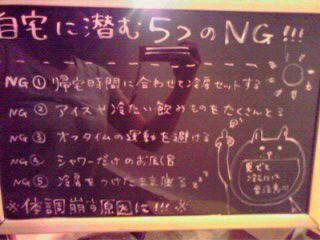 自宅に潜む5つのNG!!!
NG① 帰宅時間に合わせて冷房セットする
NG② アイスや冷たい飲みものをたくさんとる
NG③ オフタイムの運動を避ける
NG④ シャワーだけのお風呂
NG⑤ 冷房をつけたまま寝る zzz
※体調崩す原因に!!!※